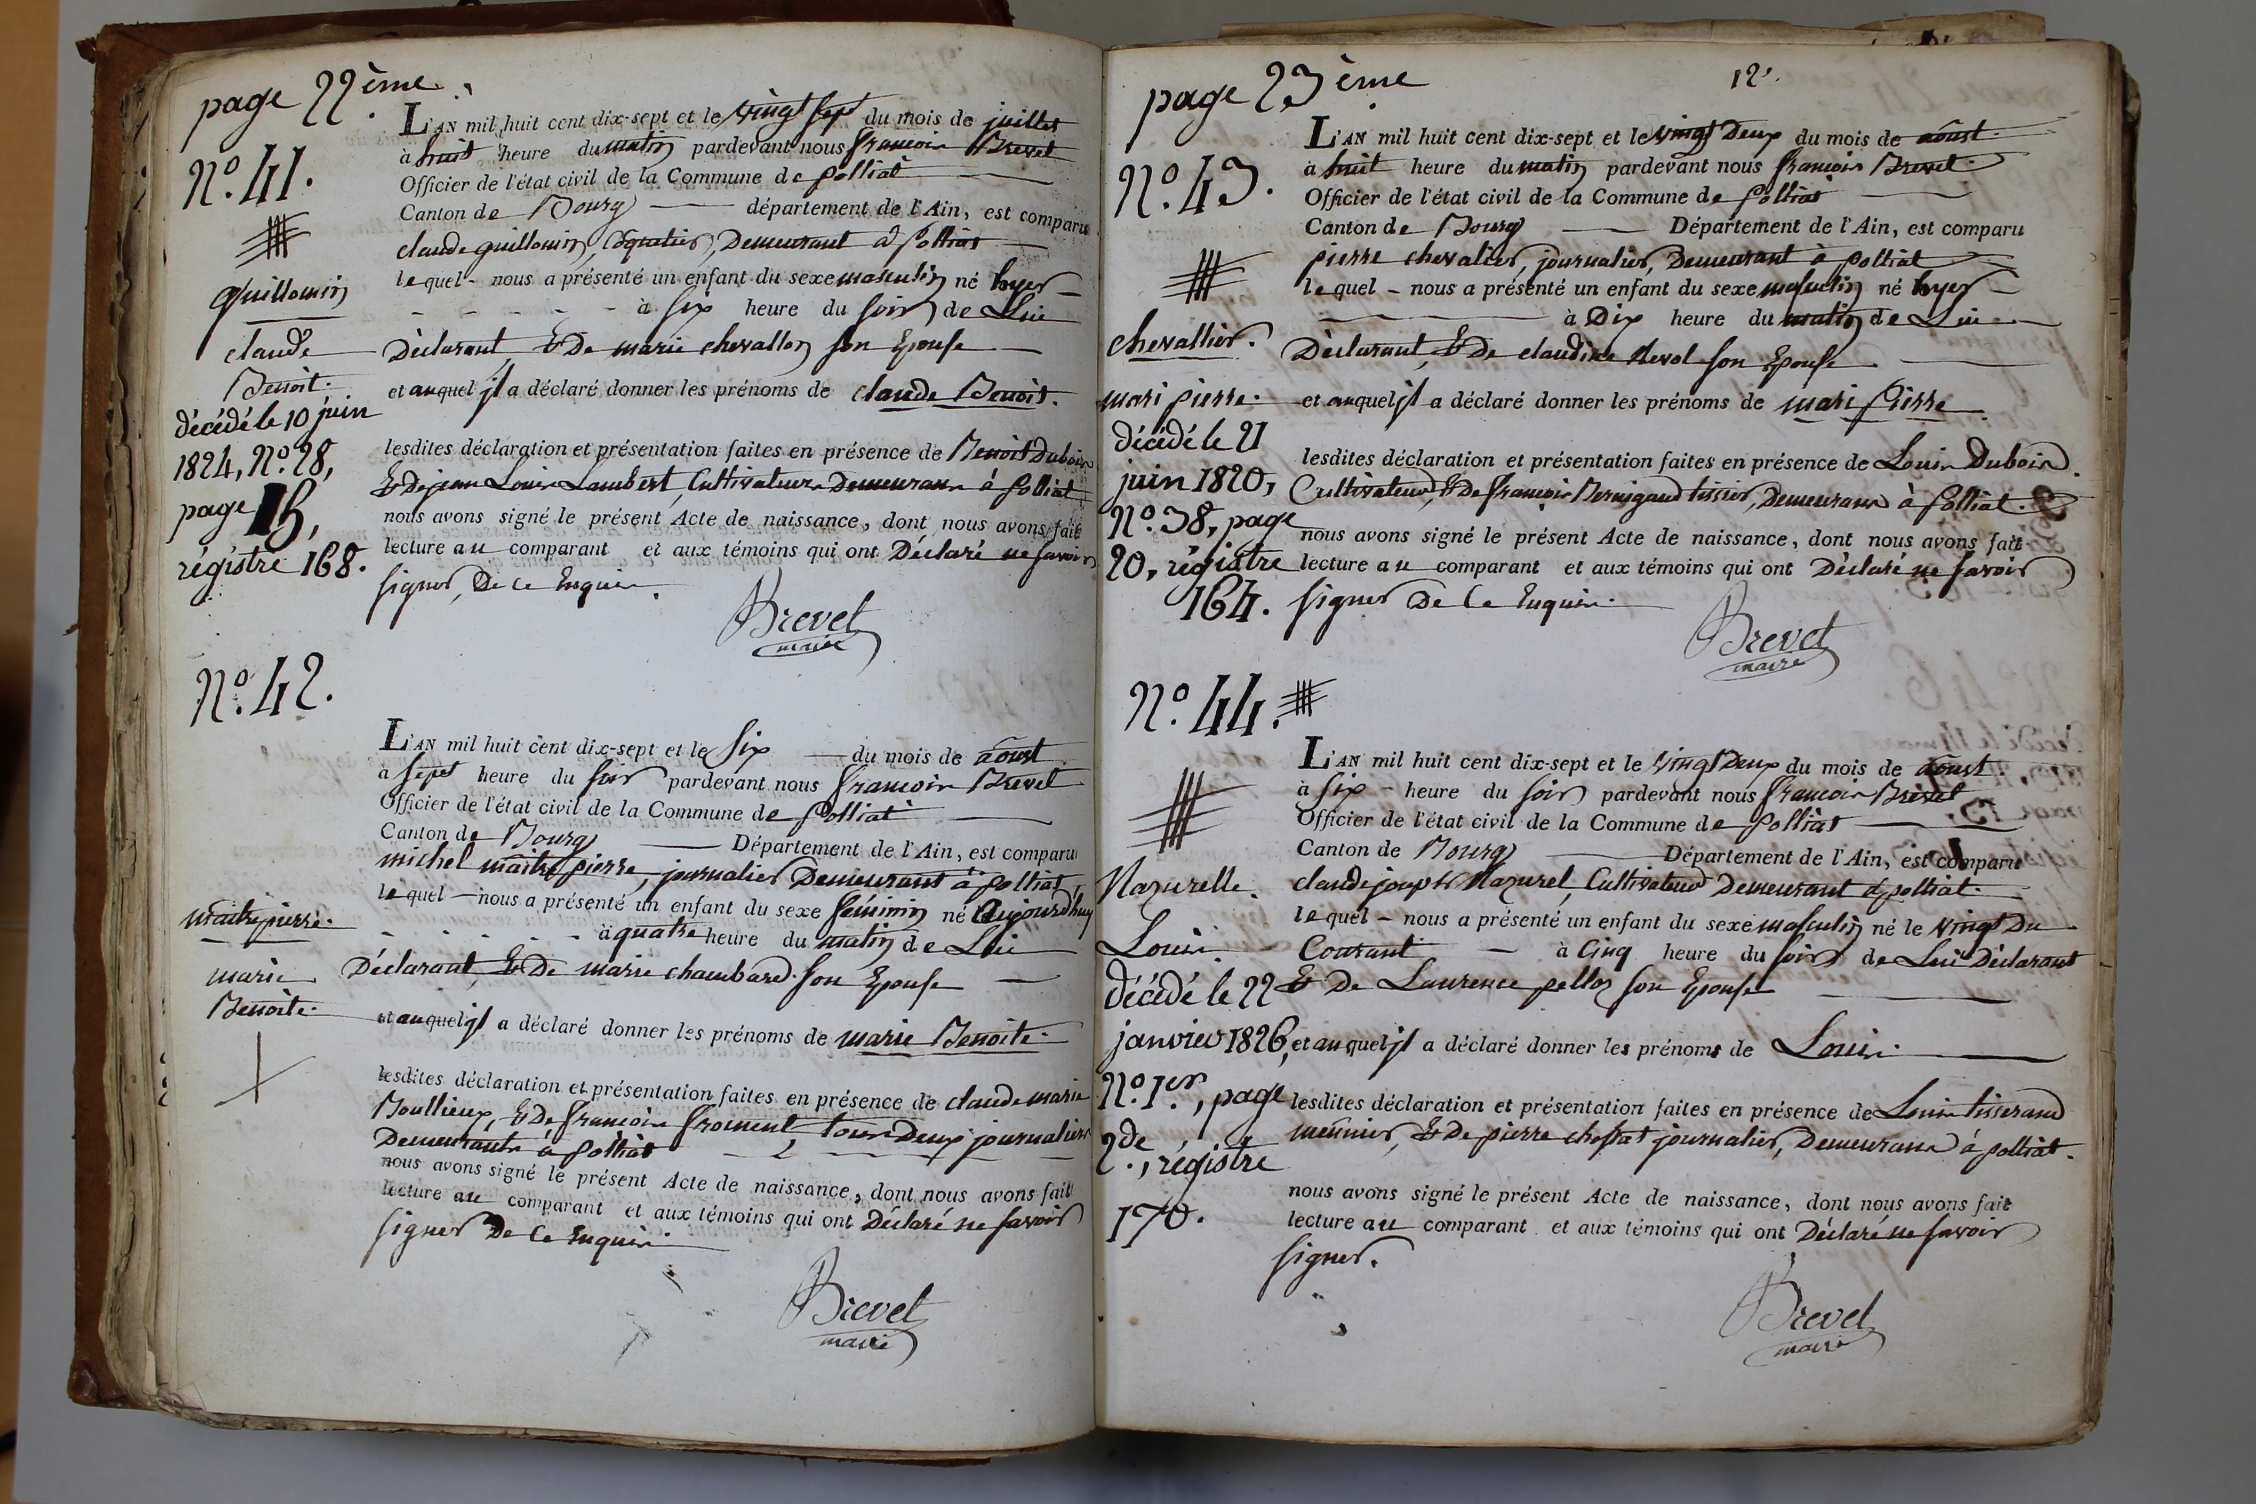 page 22ème
N.º 41.
Guillomin
claude
Benoit.
décédé le 10 juin
1824, N.º 28,
page 15,
régistre 168.
L'AN mil huit cent dix-sept et le vingt sept du mois de juillet
à huit heure du matin pardevant nous francois Brevet
Officier de l'état civil de la Commune de polliat
Canton de Bourg département de l'Ain, est comparu
claude guillomin, Demeurant à polliat
lequel nous a présenté un enfant du sexe masculin né hyer
à six heure du soir de Lui
Déclarant, & De marie chevallon son Epouse
et auquel jl a déclaré donner les prénoms de claude Benoit.
lesdites déclaration et présentation faites en présence de Benoit Dubois
& De jean Louis Lambert, Cultivateurs Demeurans à polliat
nous avons signé le présent Acte de naissance, dont nous avons fait
lecture au comparant et aux témoins qui ont Déclaré ne savoir
signer, De ce Enquis.
Brevet
maire
N.º 42.
maitrepierre.
marie
Benoite.
L'AN mil huit cent dix-sept et le six du mois de aoust
à sept heure du soir pardevant nous francois Brevet
Officier de l'état civil de la Commune de Polliat
Canton de Bourg Département de l'Ain, est comparu
michel maitrepierre, journalier Demeurant à polliat,
lequel nous a présenté un enfant du sexe féminin né aujourd'huy
à quatre heure du matin de Lui
Déclarant, & De marie chambard son Epouse
et auquel jl a déclaré donner les prénoms de marie Benoite.
lesdites déclaration et présentation faites en présence de claude marie
Boullieux, & De francois froment, tous Deux journaliers
Demeurants à polliat
nous avons signé le présent Acte de naissance, dont nous avons fait
lecture au comparant et aux témoins qui ont Déclaré ne savoir
signer De ce Enquis.
Brevet
maire
page 23ème
12.
N.º 43.
chevallier.
mari pierre.
décédé le 21
juin 1820,
N.º 38, page
20, régistre
164.
L'AN mil huit cent dix-sept et le vingt Deux du mois de aoust.
à huit heure du matin pardevant nous francois Brevet
Officier de l'état civil de la Commune de Polliat
Canton de Bourg Département de l'Ain, est comparu
pierre chevalier, journalier, Demeurant à polliat
lequel nous a présenté un enfant du sexe masculin né hyer
à Dix heure du matin de Lui
Déclarant, & De claudine Nevol son Epouse
et auquel jl a déclaré donner les prénoms de mari Pierre.
lesdites déclaration et présentation faites en présence de Louis Dubois
Cultivateur, & De francois Bernigaud tissier, Demeurans à polliat.
nous avons signé le présent Acte de naissance, dont nous avons fait
lecture au comparant et aux témoins qui ont Déclaré ne savoir
signer De Ce Enquis.
Brevet
maire
N.º 44.
Nazurelle.
Louis.
décédé le 22
janvier 1826,
N.º 1er, page
2de, régistre
170.
L'AN mil huit cent dix-sept et le vingt Deux du mois de aoust.
à six heure du soir pardevant nous francois Brevet
Officier de l'état civil de la Commune de polliat
Canton de Bourg Département de l'Ain, est comparu
claude joseph Nazurel, Cultivateur Demeurant à polliat.
lequel nous a présenté un enfant du sexe masculin né le vingt Du
Courant à Cinq heure du soir de Lui Déclarant
& De Laurence pellos son Epouse
et auquel jl a déclaré donner les prénoms de Louis.
lesdites déclaration et présentation faites en présence de Louis tisserand
meunier, & De pierre chossat journalier, Demeurans à polliat.
nous avons signé le présent Acte de naissance, dont nous avons fait
lecture au comparant et aux témoins qui ont Déclaré ne savoir
signer.
Brevet
maire